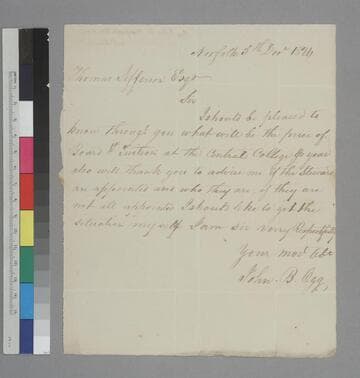 Norfolk 5th Decr 1824
Thomas Jefferson Esqr
Sir
I should be pleased to
know through you what will be the price of
Board & Tuition at the Central College pr year
also will thank you to advise me if the Stewards
are appointed and who they are, if they are
not all appointed I should like to get the
situation myself I am sir very Respectfully
Your mod Obt
John B. Ogg